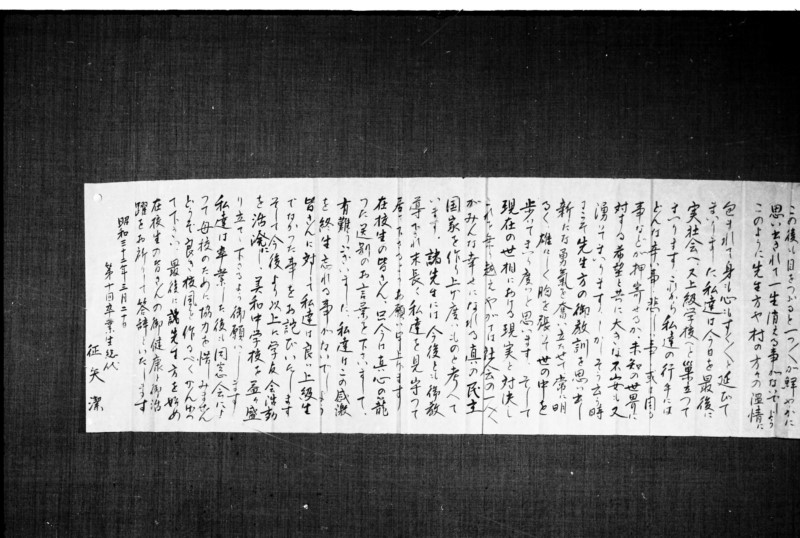 この後も目をつぶると一つ一つが鮮やかに
思い出されて一生消える事がないでしょう
このように先生方や村の方々の温情に
包まれて身も心もすくすくと延びて
まいりました私達は今日を最後に
実社会へ又上級学校へと巣立って
まいります これから私達の行手には
どんな辛い事 悲しい事 或は困る
事などが押寄せるか未知の世界に
対する希望と共に大きな不安も又
湧いてまいります しかしそういう時
こそ先生方の御教訓を思い出し
新たな勇気を奮い立たせて常に明
るく雄々しく胸を張って世の中を
歩いてまいり度いと思います そして
現在の世相における現実と対決し
これを乗り越えやがては社会の人々
がみんな幸せになれる真の民主
国家を作り上げ度いものと考えて
います 諸先生には今後とも御教
導され末長く私達を見守って
居て下さるようお願い申し上げます
在校生の皆さん 只今は真心の籠
った送別のお言葉を下さいまして
有難うございました 私達はこの感激
を終生忘れる事がないでしょう
皆さんに対して私達は良い上級生
でなかった事をお詫びいたします
そして今後より以上に学友会活動
を活溌に 美和中学校を益々盛
り立て下さるよう御願いします
私達は卒業した後も同窓会によ
って母校のために協力を惜しみません
どうぞ良き校風を作るべく
て下さい 最後に諸先生方を始め
在校生の皆さんの御健康と御活
躍をお祈りして答辞といたします
昭和三十二年三月二十日
第十回卒業生総代
征矢 潔